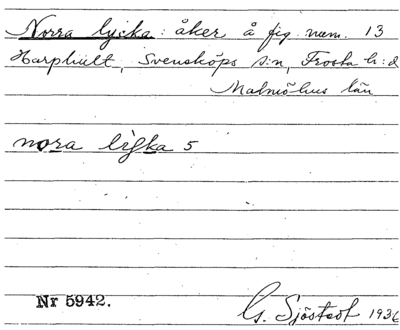 Norra lycka: åker å fig. num. 13
Harphult, Svensköps s:n, Frosta h:d
Malmöhus län
nora lyka 5
Nr 5942.
G. Sjöstedt 1936